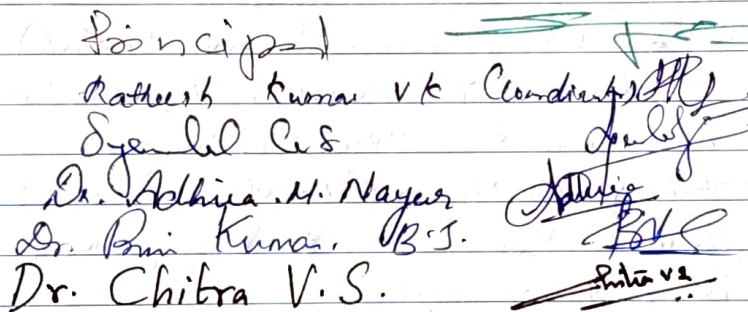 Principal
Ratheesh Kumar V K (Coordinator)
Syamlal C. S
Dr. Adhira M. Nayar
Dr. Bini Kumar. B.J.
Dr. Chitra V.S. Chitra VS